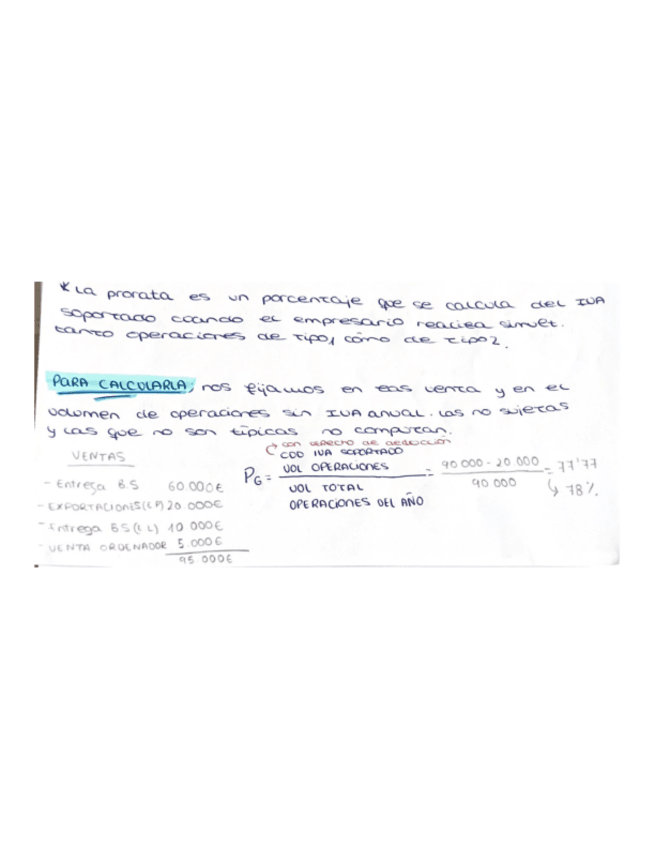 * La prorata es un porcentaje que se calcula del IVA
soportado cuando el empresario realiza simult.
tanto operaciones de tipo1 cómo de tipo2.
PARA CALCULARLA, nos fijamos en las venta y en el
volumen de operaciones sin IVA anual. Las no sujetas
y las que no son típicas no computan.
VENTAS
- Entrega BS 60.000€
- EXPORTACIONES(EP) 20.000€
- Entrega BS(EL) 10 000€
- VENTA ORDENADOR 5.000€
95.000€
→ con derecho de deducción
CDD IVA SOPORTADO
PG = VOL OPERACIONES / VOL TOTAL OPERACIONES DEL AÑO = 90.000 - 20.000 / 90.000 = 77'77
↳ 78%